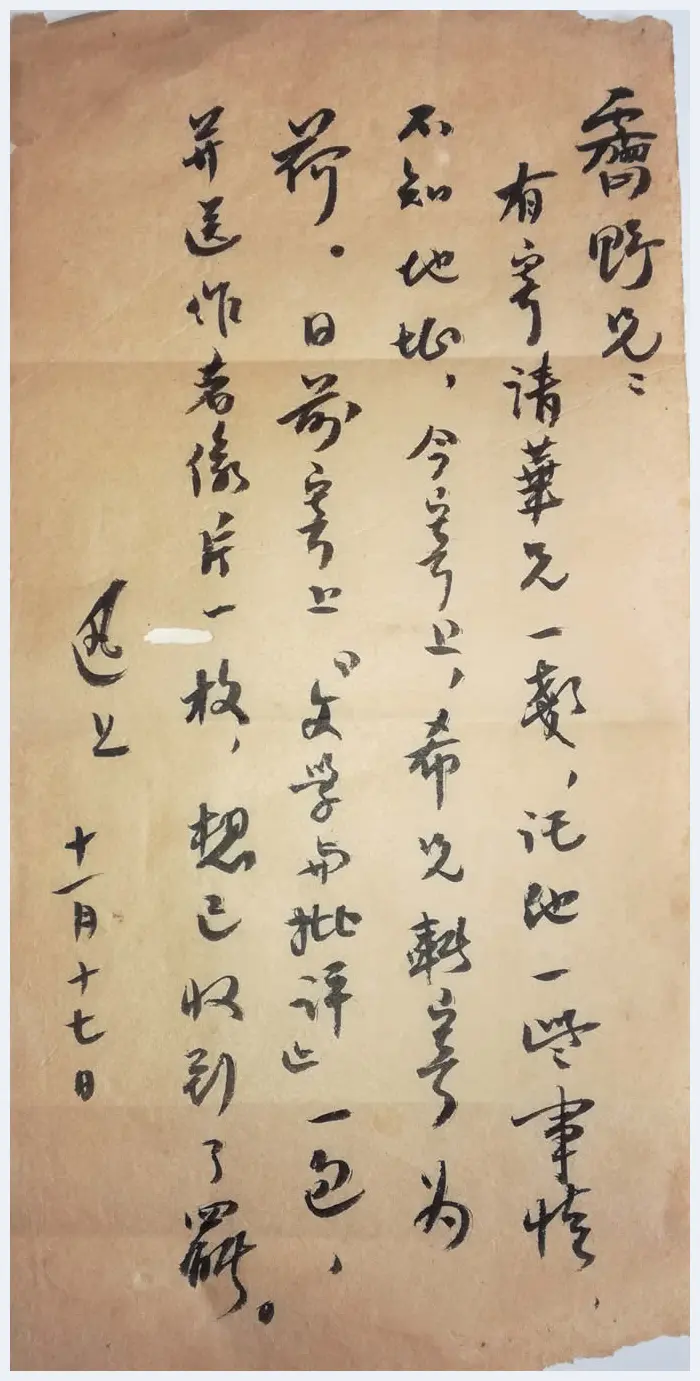 霽野兄：
有寄請華兄一声，託他一些事情，
不知地址，今寄上，希兄轉寄为
荷。日前寄上『文学与批评』一包，
并送作者像片一枚，想已收到了罷。
迅上 十一月十七日